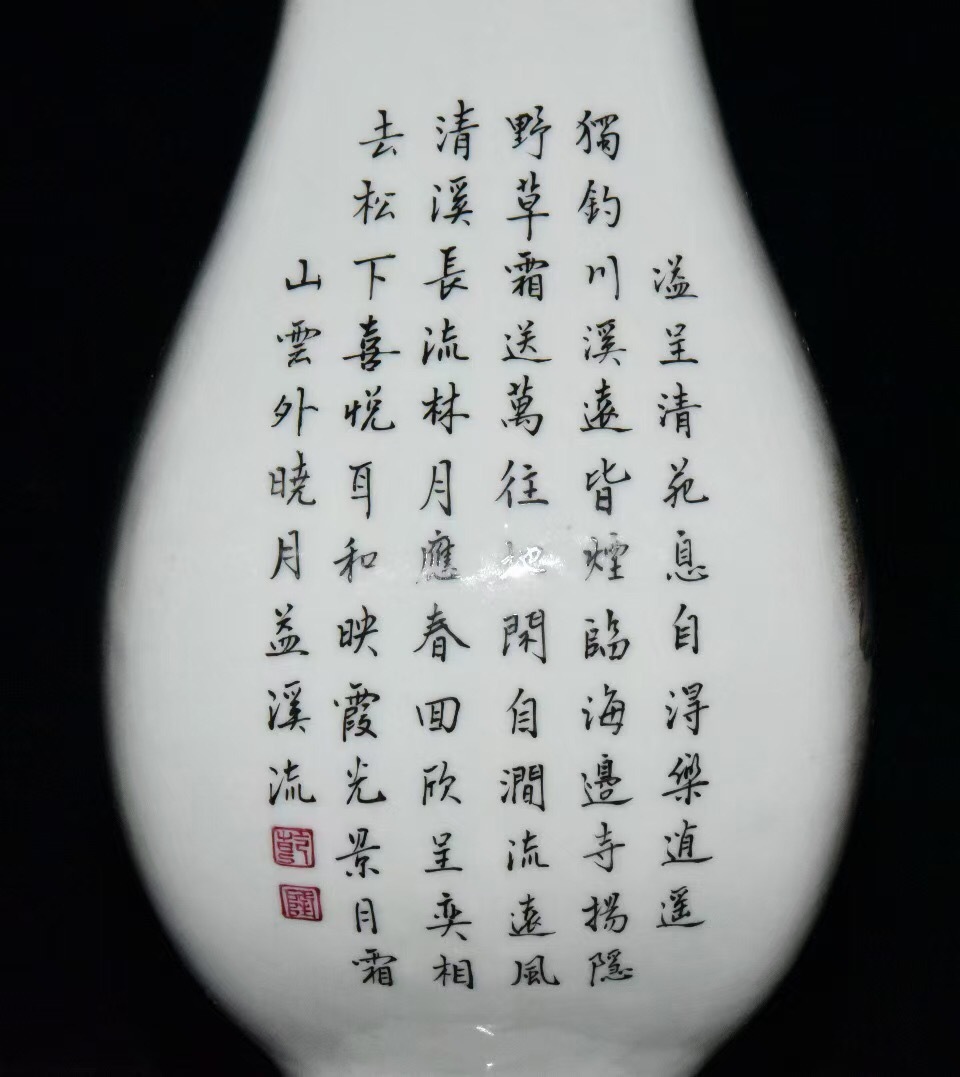 溢呈清苑息自淂樂逍遥
獨釣川溪遠皆煙臨海邊寺揚隱
野草霜送萬往地閑自澗流遠風
清溪長流林月應春回欣呈奕相
去松下喜悅耳和映霞光景月霜
山雲外曉月益溪流
乾
隆